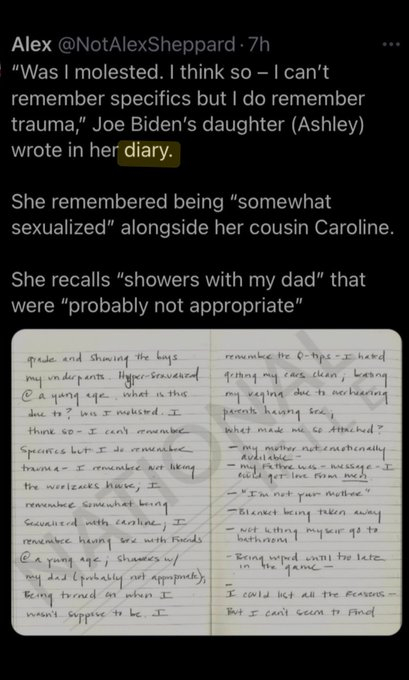 Alex @NotAlexSheppard · 7h
“Was I molested. I think so – I can’t
remember specifics but I do remember
trauma,” Joe Biden’s daughter (Ashley)
wrote in her diary.
She remembered being “somewhat
sexualized” alongside her cousin Caroline.
She recalls “showers with my dad” that
were “probably not appropriate”
grade and showing the boys
my underpants. Hyper-sexualized
@ a young age. what is this
due to? Was I molested. I
think so - I can't remember
specifics but I do remember
trauma - I remember not liking
the woolzacks house; I
remember somewhat being
sexualized with caroline; I
remember having sex with friends
@ a young age; showers w/
my dad (probably not appropriate),
Being turned on when I
wasn't suppose to be. I
remember the Q-tips - I hated
getting my ears clean;
my vagina due to overhearing
parents having sex;
what made me so Attached?
- my mother not emotionally
available -
- my Father was - message - I
could get love from men
- "I'm not your mother"
- Blanket being taken away
- Not letting myself go to
bathroom
- Being wiped until too late
in the game -
-
I could list all the Reasons -
But I can't seem to find
NATIONAL